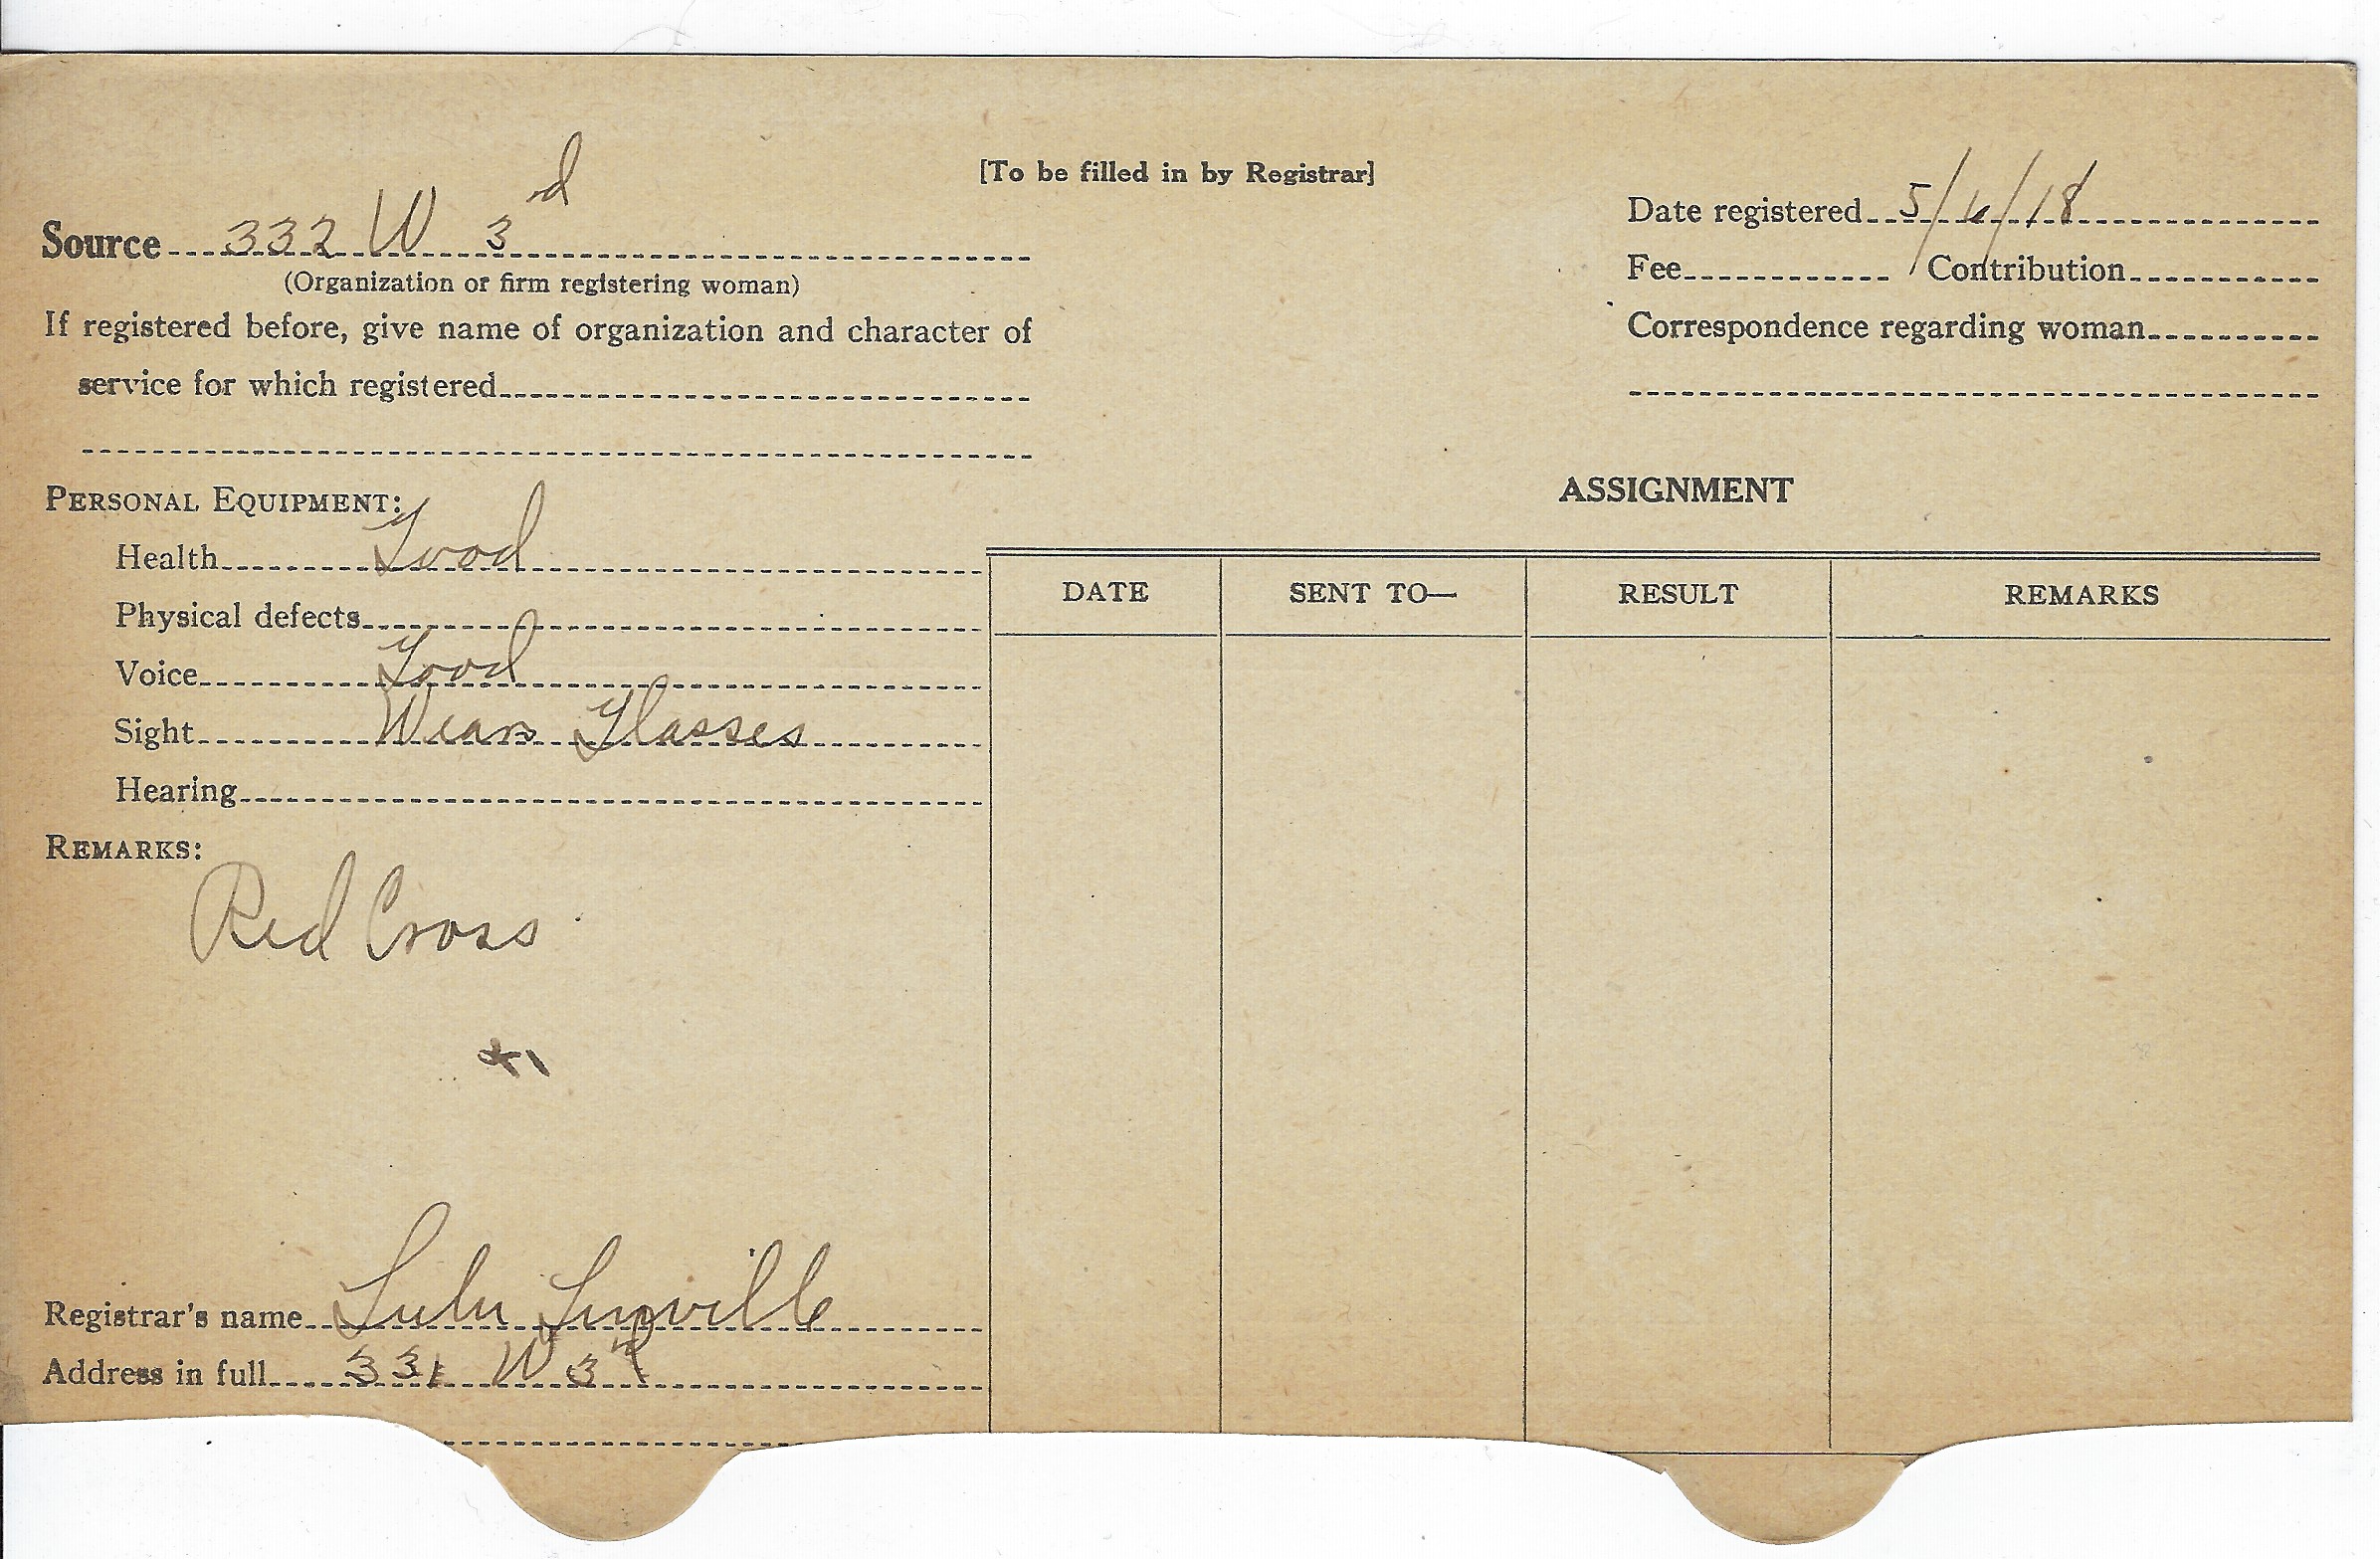 [To be filled in by Registrar]
Source 332 W 3rd
(Organization or firm registering woman)
If registered before, give name of organization and character of
service for which registered
Date registered 5/6/18
Fee Contribution
Correspondence regarding woman
PERSONAL EQUIPMENT:
Health Good
Physical defects
Voice Good
Sight Wears Glasses
Hearing
REMARKS:
Red Cross
ASSIGNMENT
DATE SENT TO— RESULT REMARKS
Registrar's name Lulu Linville
Address in full 331 W 3rd